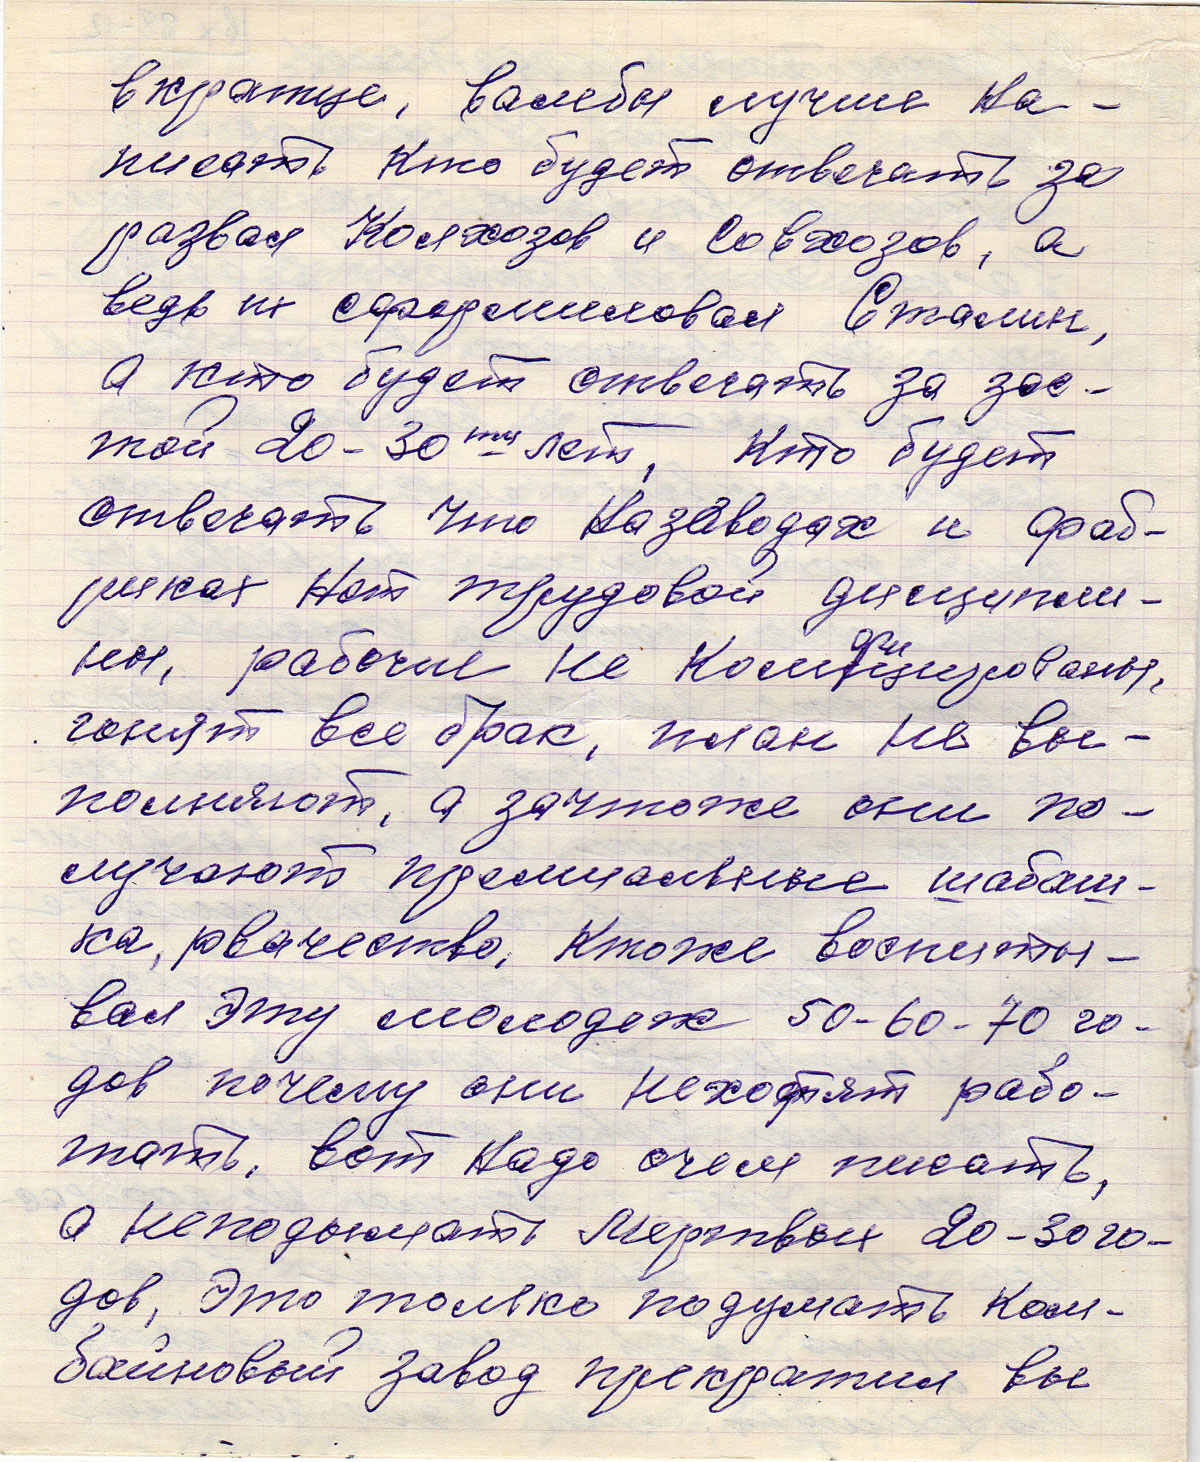 вкратце, вамебы лучше на-
писать Кто будет отвечать за
развал Колхозов и Совхозов, а
ведь их сформиловал Сталин,
а кто будет отвечать за зас-
той 20-30ти лет, Кто будет
отвечать что Назаводах и фаб-
риках Нет трудовой дисципли-
ны, рабочие не Комдицированы,
гонят все брак, план не вы-
полняют, а зачтоже они по-
лучают премиальные шабаш-
ка, рвачество, Ктоже воспиты-
вал Эту молодеж 50-60-70 го-
дов почему они нехотят рабо-
тать, вот Надо очем писать,
а неподымать Мертвых 20-30 го-
дов, Это только подумать Ком-
байновый завод прекратил вы